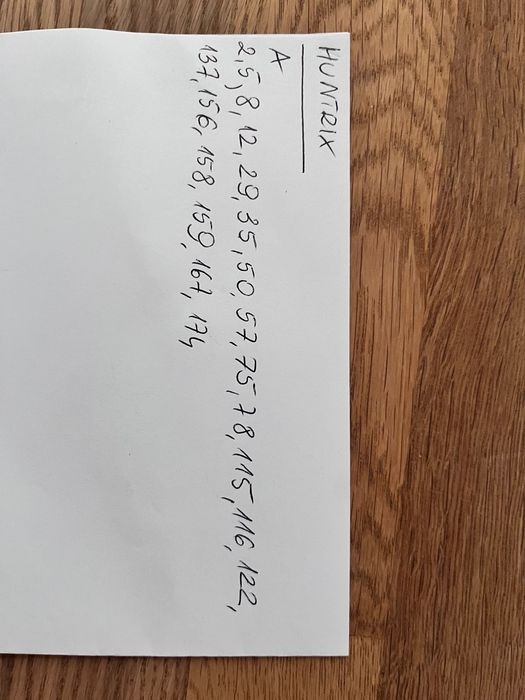 HUNTRIX
A
2,5,8,12,29,35,50,57,75,78,115,116,122,
137,156,158,159,167,174